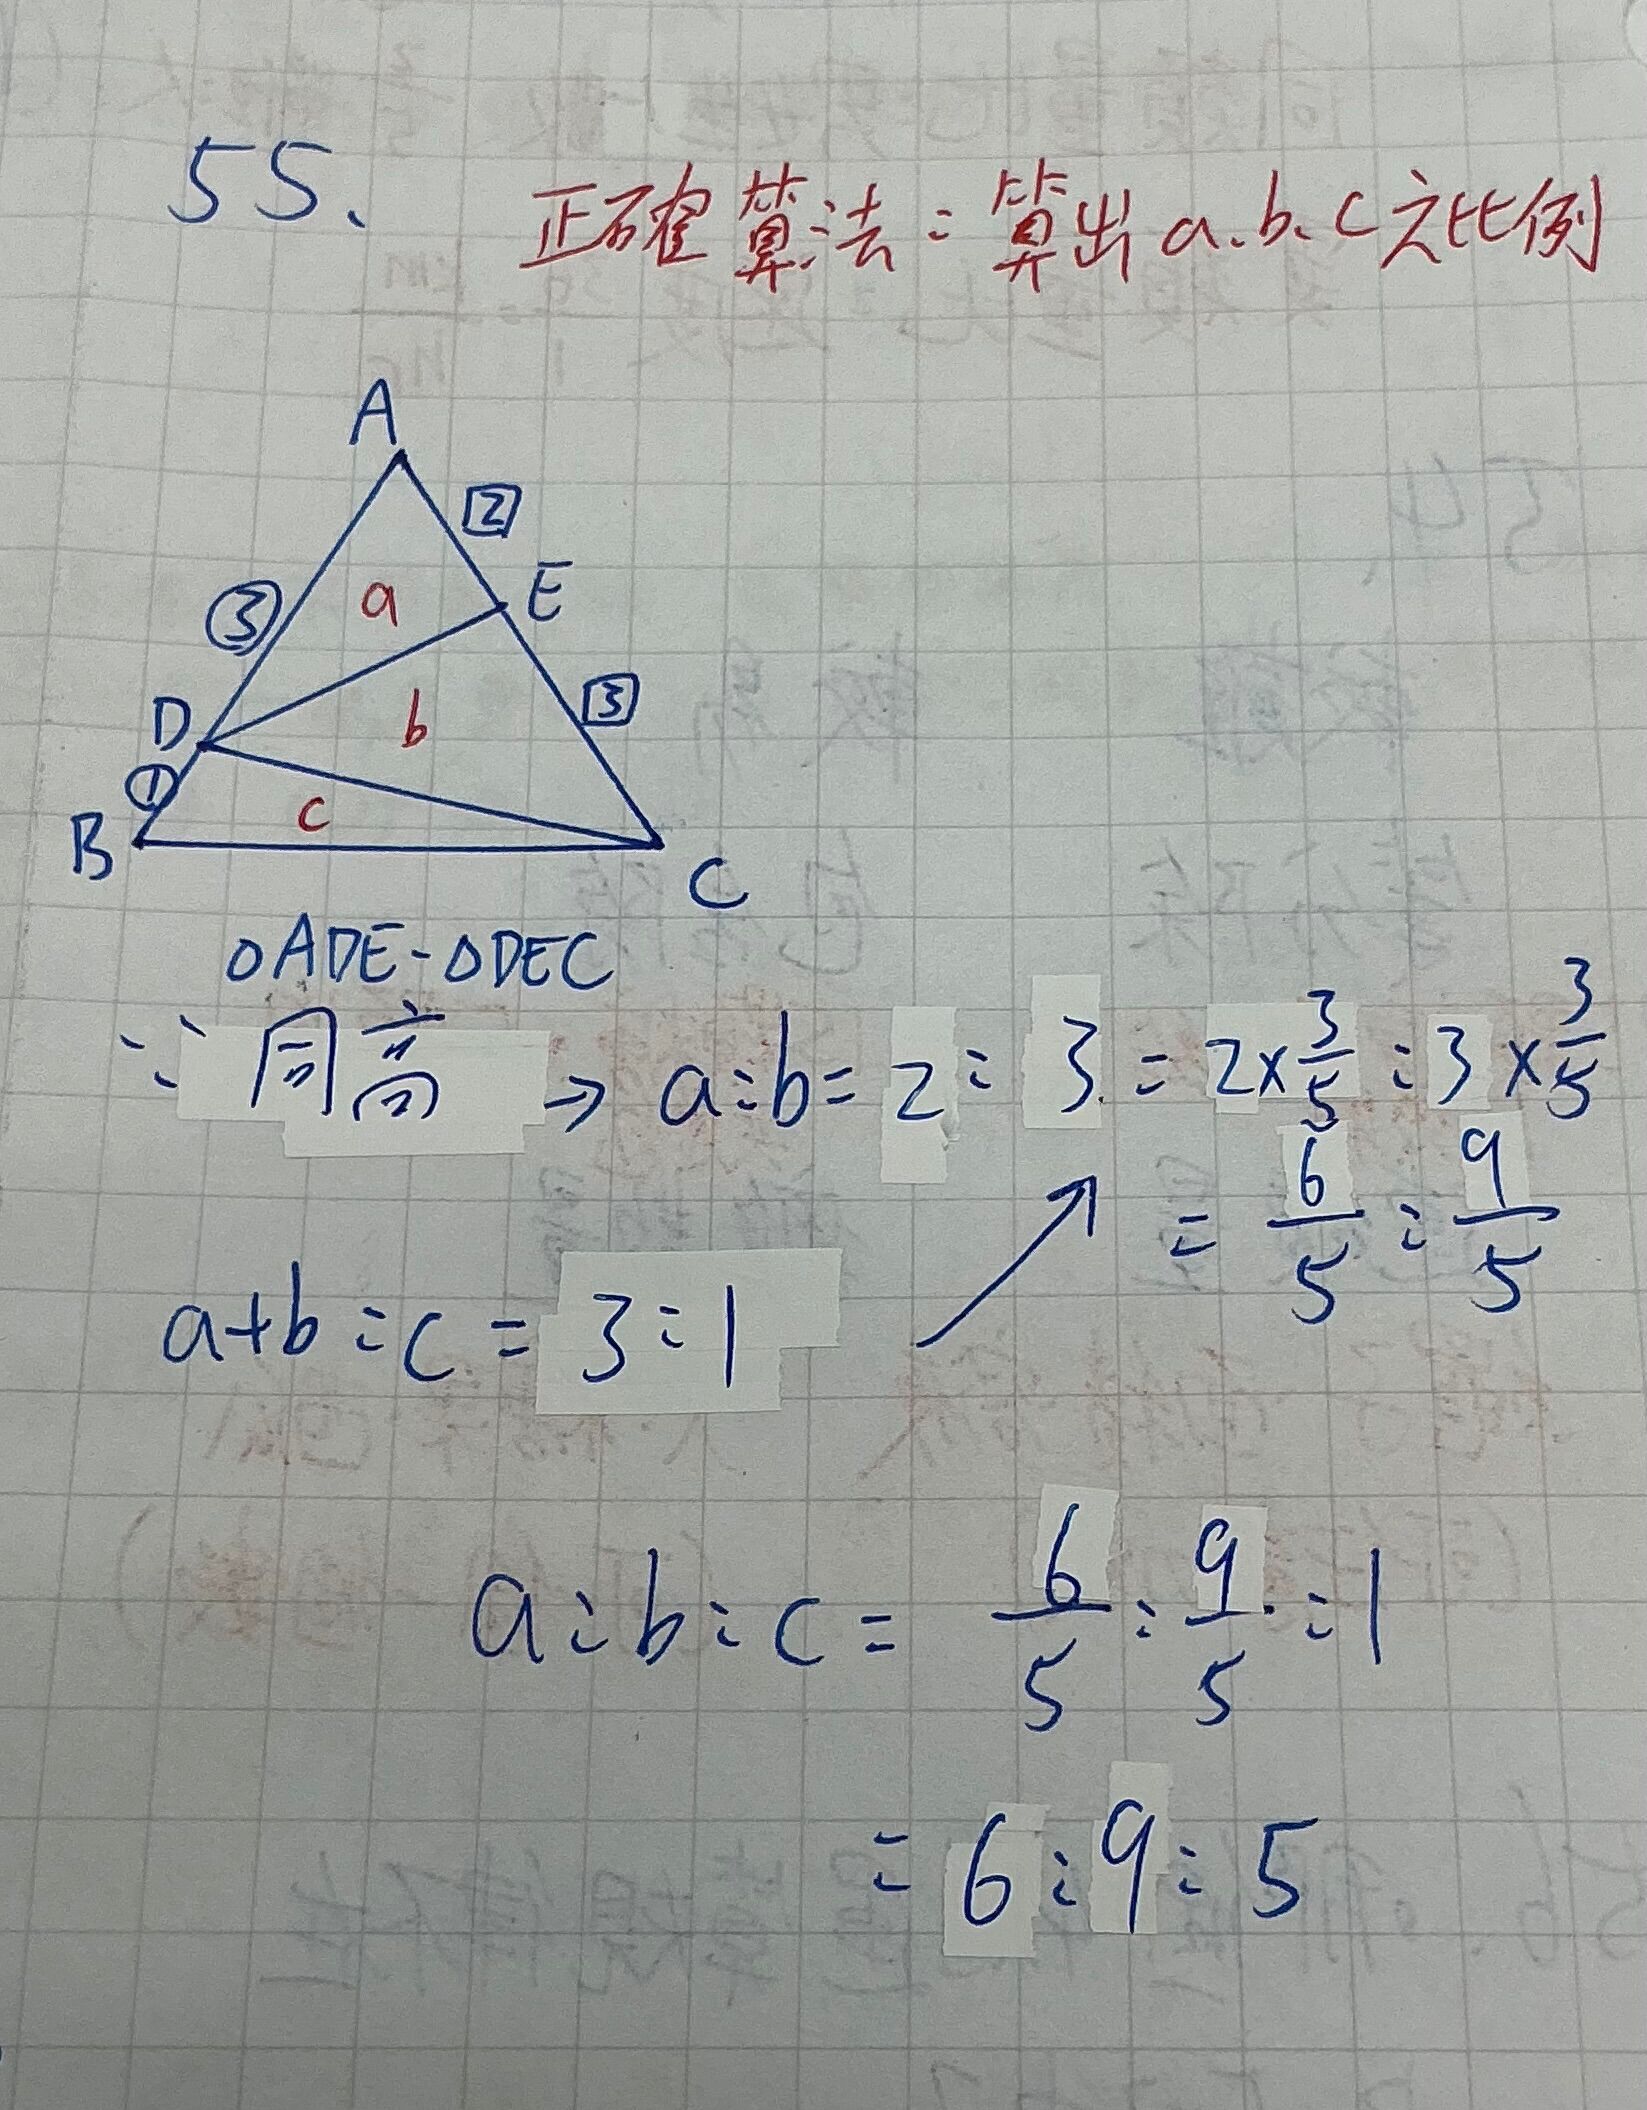 55.
正確算法：算出a.b.c之比例
A
2
a
E
3
D
b
3
1
c
B
C
△ADE-△DEC
∵同高→a:b=2:3=2×3/5:3×3/5
=6/5:9/5
a+b:c=3:1
a:b:c=6/5:9/5:1
=6:9:5